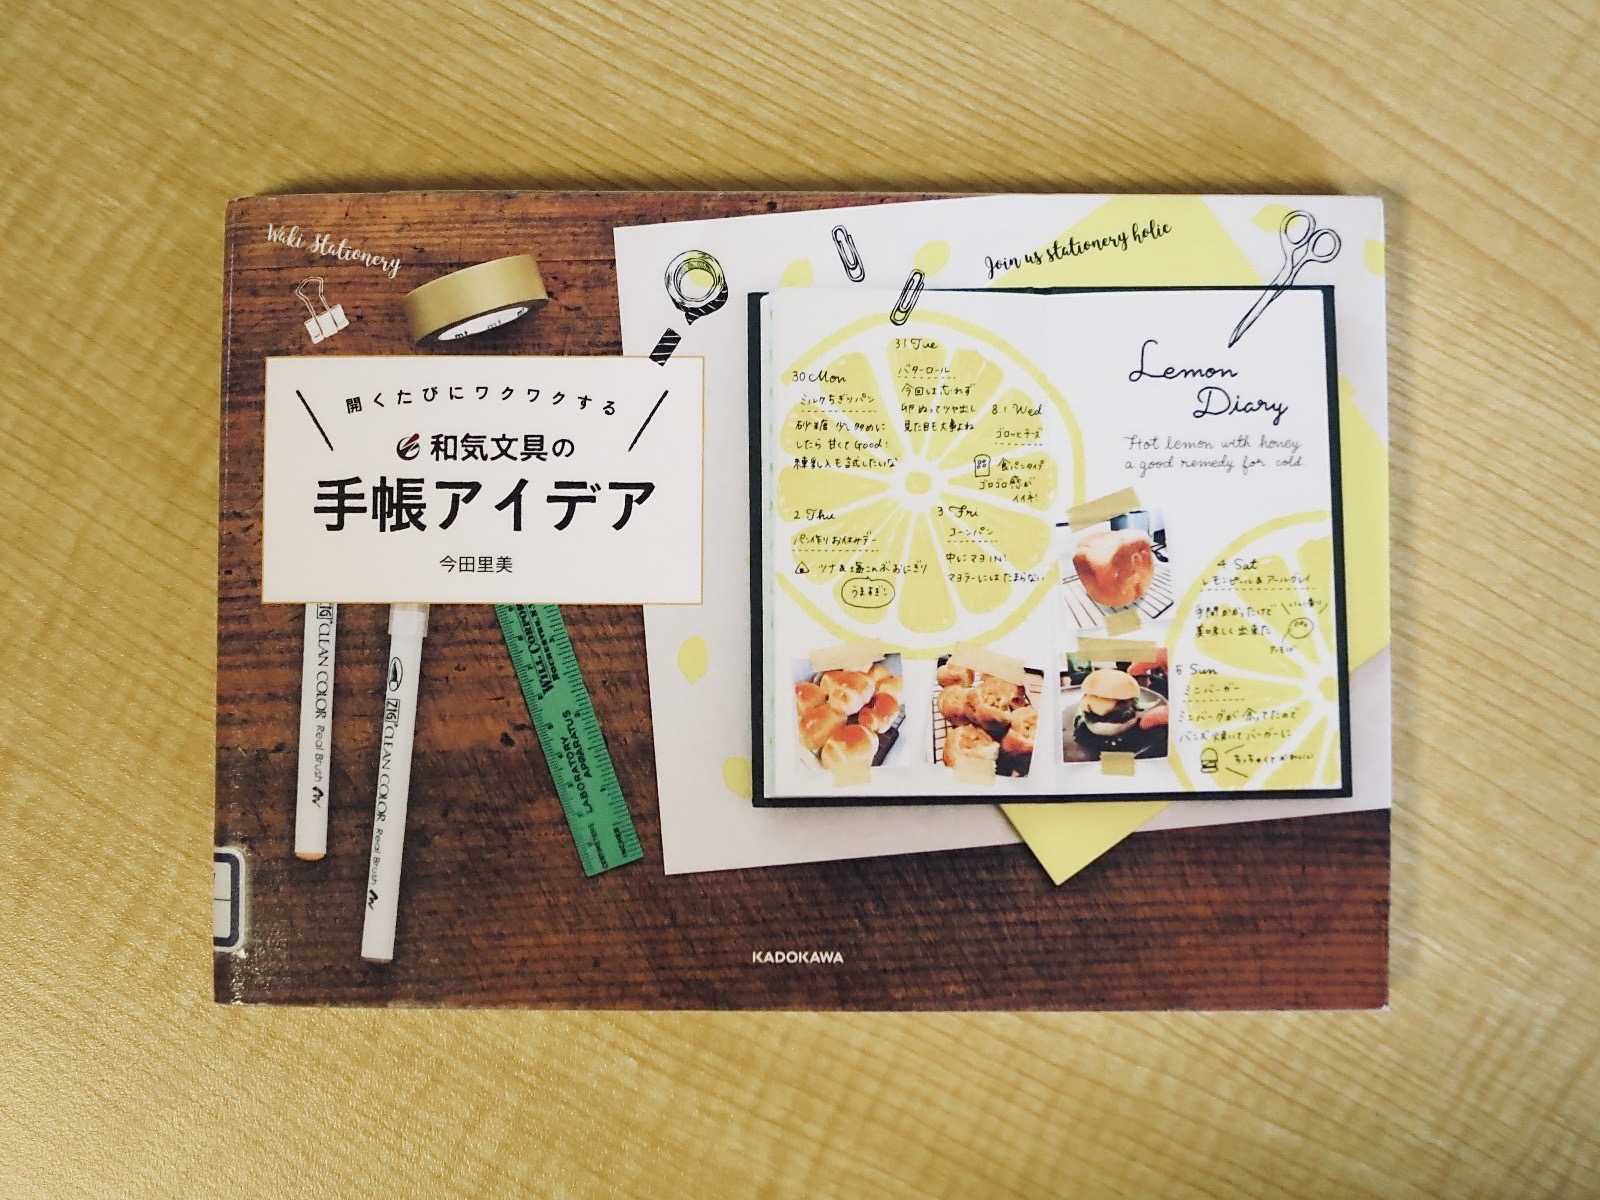 Waki Stationery
Join us stationery holic
開くたびにワクワクする
和気文具の
手帳アイデア
今田里美
mt mt
ZIG CLEAN COLOR Real Brush
ZIG CLEAN COLOR Real Brush
WILL CORPORATION
LABORATORY
APPARATUS
30 Mon
ミルクちぎりパン
砂糖少し多めに
したら甘くてGood!
練乳入も試したいな
31 Tue
バターロール
今回は忘れず
卵ぬってツヤ出し
見た目も大事よね
8.1 Wed
ゴロッとチーズ
食パンタイプ
ゴロゴロ感が
イイネ!
2 Thu
パン作りお休みデー
ツナ&塩こんぶおにぎり
うますぎ!
3 Fri
コーンパン
中にマヨIN!
マヨラーにはたまらない
Lemon
Diary
Hot lemon with honey
a good remedy for cold.
4 Sat
レモンピール&アールグレイ
手間かかったけど
美味しく出来た
5 Sun
ミニバーガー
ミニバーグが余ってたので
バンズ焼いてバーガーに
KADOKAWA